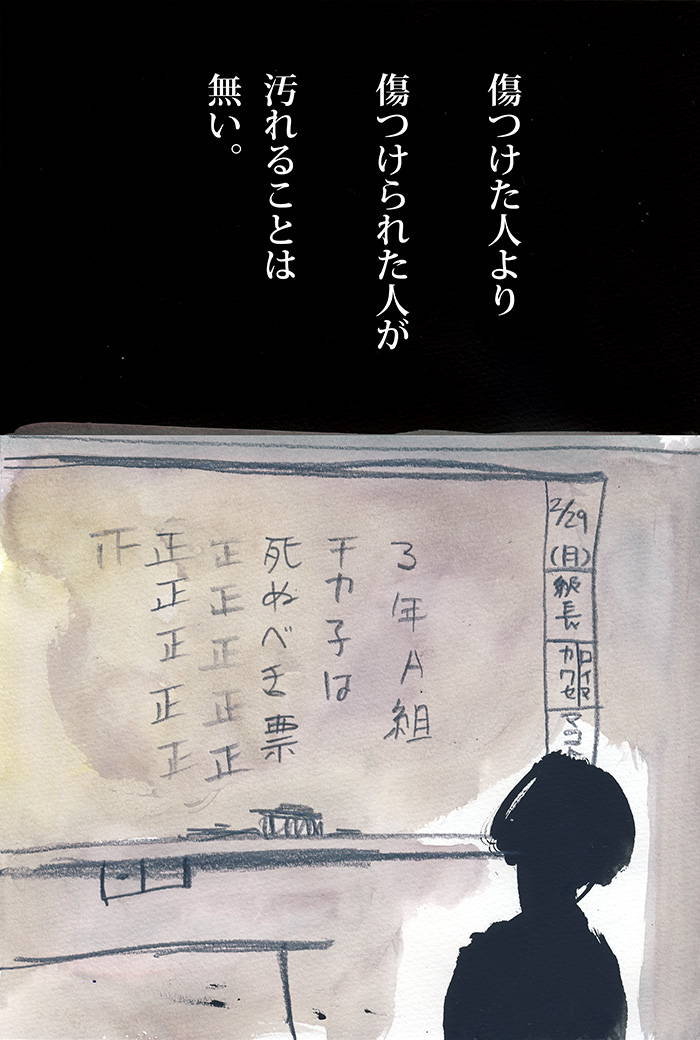 傷つけた人より
傷つけられた人が
汚れることは
無い。
2/29
(月)
級長
カワセ
マコト
3年A組
チカ子は
死ぬべき票
正正正正正
正正正正正